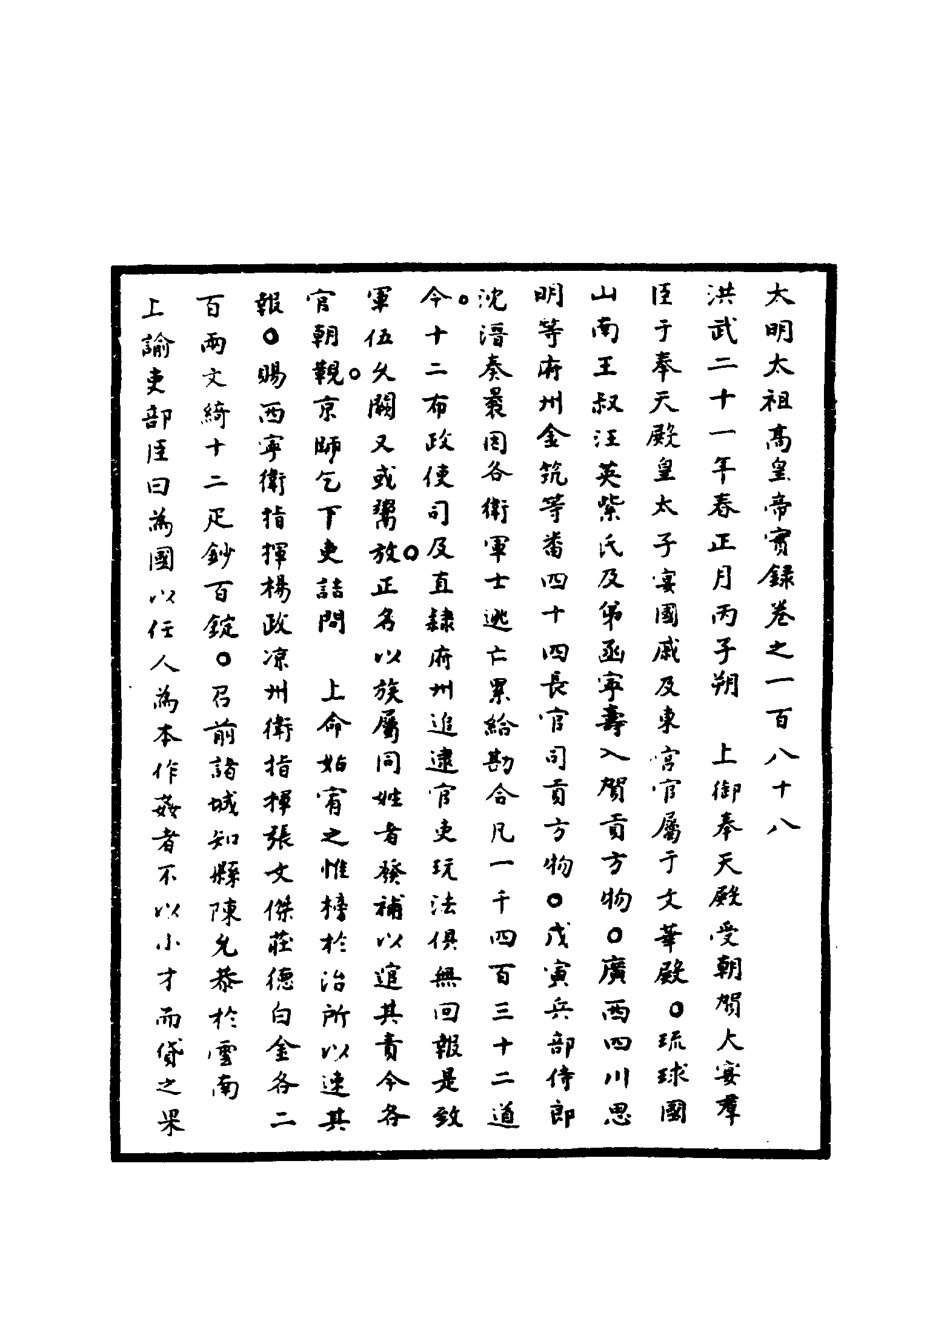 太明太祖高皇帝實錄卷之一百八十八
洪武二十一年春正月丙子朔　上御奉天殿受朝賀大宴羣
臣于奉天殿皇太子宴國戚及東宮官屬于文華殿○琉球國
山南王叔汪英紫氏及弟函寧壽入賀貢方物○廣西四川思
明等府州金筑等番四十四長官司貢方物○戊寅兵部侍郎
沈溍奏曩因各衛軍士逃亡累給勘合凡一千四百三十二道
今。十二布政使司及直隸府州追逮官吏玩法俱無回報是致
軍伍久闕又或鬻放正名以族屬同姓者發補以逭其責今各
官朝覲。京師乞下吏詰問　上命姑宥之惟榜於治所以速其
報○賜西寧衛指揮楊政凉州衛指揮張文傑莊德白金各二
百兩文綺十二疋鈔百錠○召前諸城知縣陳允恭於雲南
上諭吏部臣曰為國以任人為本作姦者不以小才而貸之果